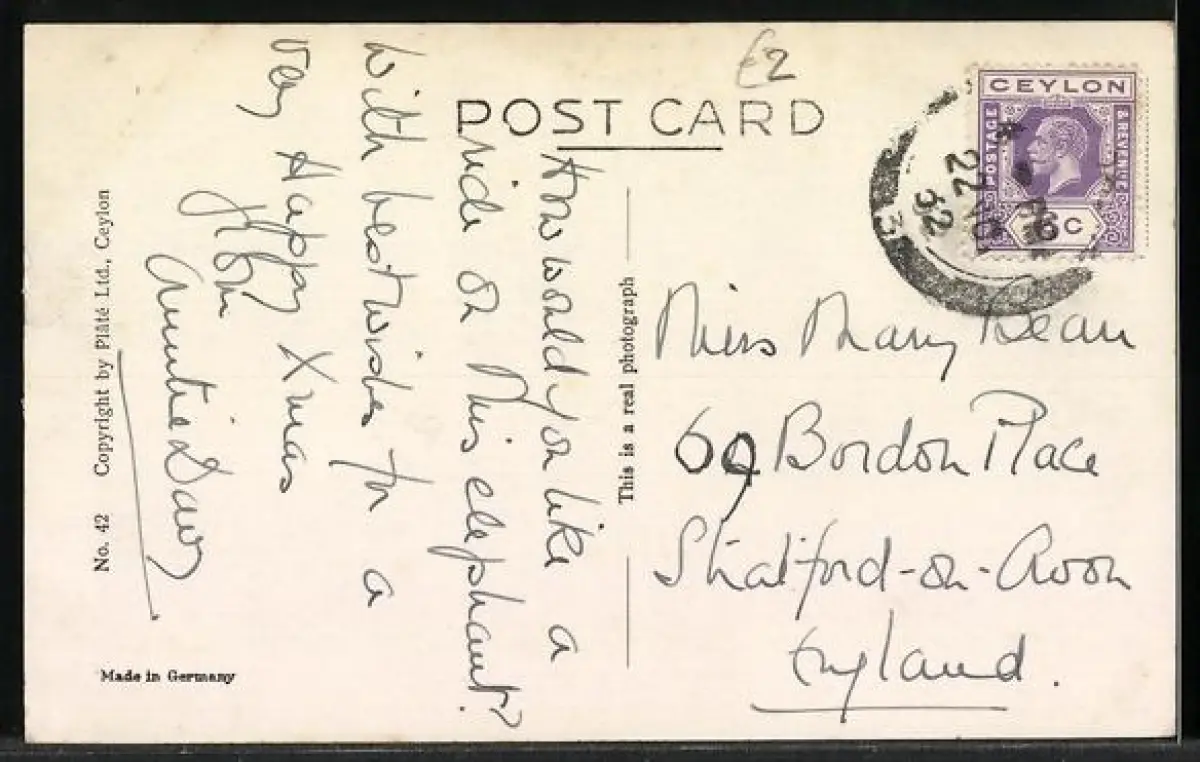 £2
POST CARD
CEYLON
POSTAGE
& REVENUE
6 C
22
32
How would you like a
ride on this elephant?
With best wishes for a
very Happy Xmas
from
Auntie
Miss Mary Bean
69 Bordon Place
Stratford-on-Avon
England.
This is a real photograph
No. 42 Copyright by Plâté Ltd., Ceylon
Made in Germany